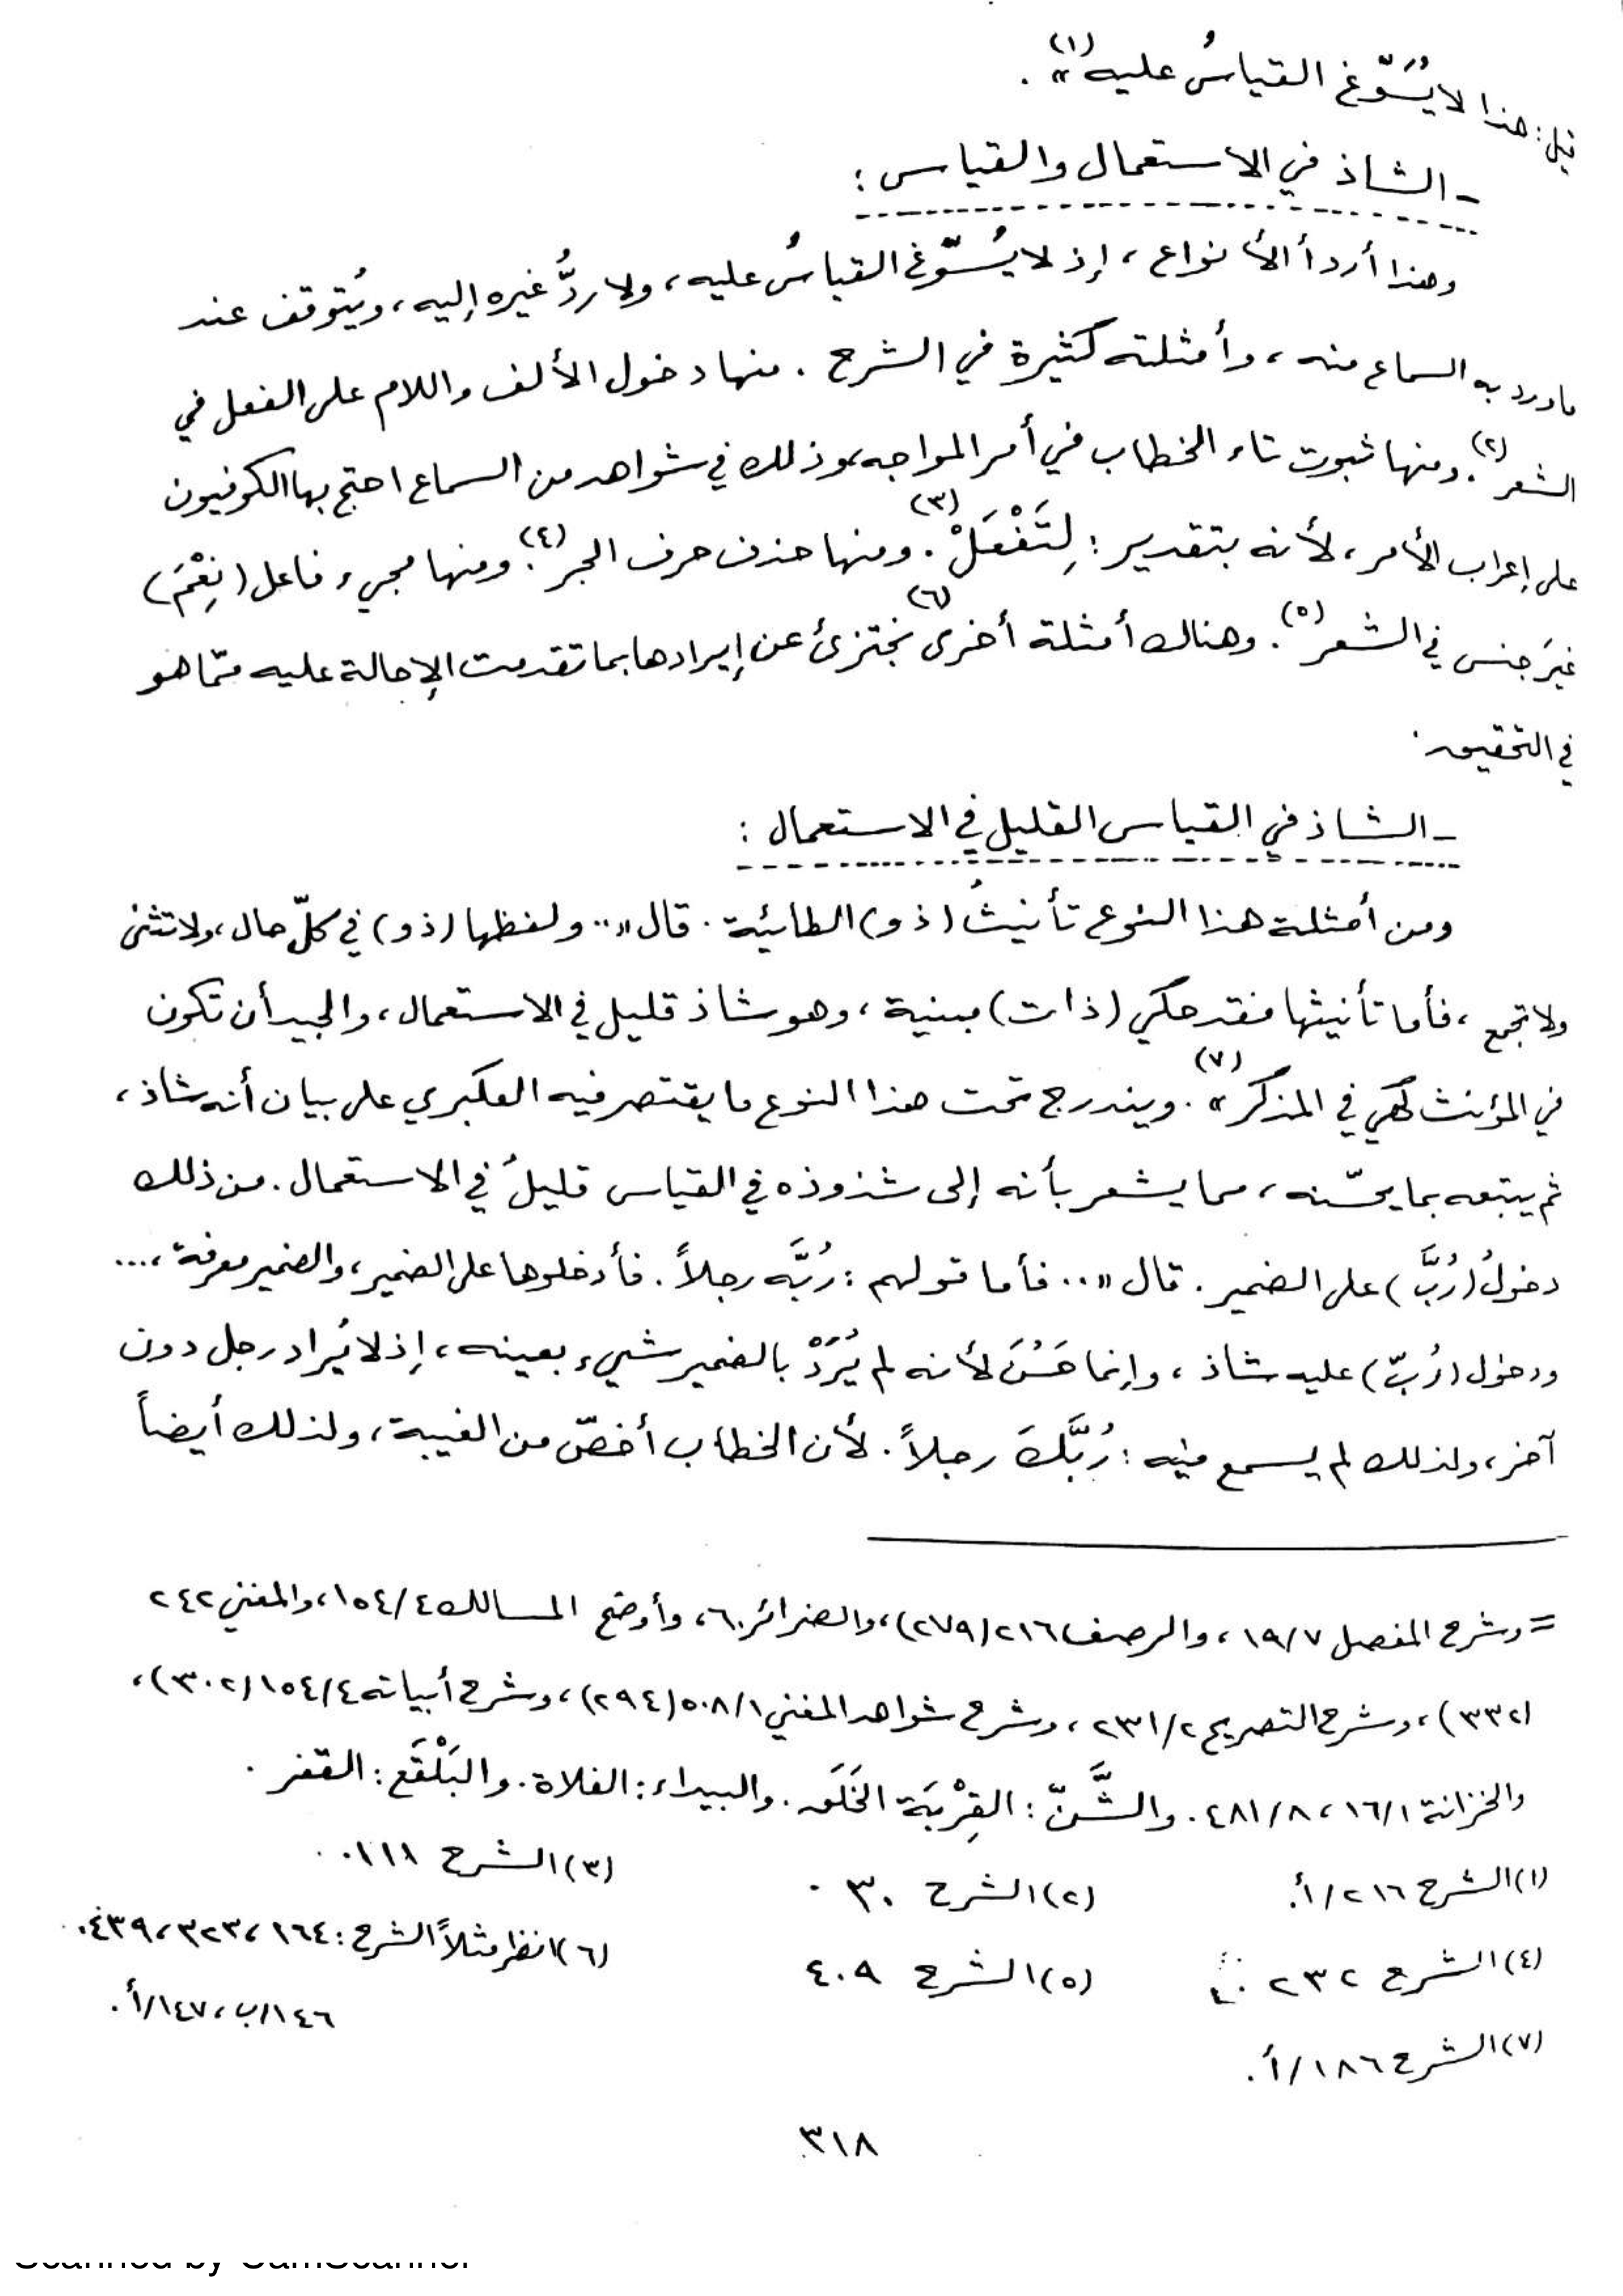 قيل: هذا لا يُسَوّغ القياسُ عليه»(١).
- الشاذ في الاستعمال والقياس :
وهذا أردأ الأنواع ، إذ لا يُسَوّغ القياسُ عليه ، ولا ردُّ غيره إليه ، ويُتوقف عند
ما ورد به السماع منه ، وأمثلته كثيرة في الشرح . منها دخول الألف واللام على الفعل في
الشعر(٢). ومنها ثبوت تاء الخطاب في أمر المواجه، وذلك في شواهد من السماع احتج بها الكوفيون
على إعراب الأمر ، لأنه بتقدير : لِتَفْعَلْ(٣). ومنها حذف حرف الجر(٤). ومنها مجيء فاعل (نِعْمَ)
غيرَ جنس في الشعر(٥). وهناك أمثلة أخرى(٦) نجتزئ عن إيرادها بما تقدمت الإحالة عليه ممّا هو
في التحقيق .
- الشاذ في القياس القليل في الاستعمال :
ومن أمثلة هذا النوع تأنيثُ (ذو) الطائية . قال «.. ولفظها (ذو) في كلّ حال ، ولا تثنى
ولا تجمع ، فأما تأنيثها فقد حكي (ذات) مبنية ، وهو شاذ قليل في الاستعمال ، والجيد أن تكون
في المؤنث كهي في المذكر»(٧). ويندرج تحت هذا النوع ما يقتصر فيه العكبري على بيان أنه شاذ ،
ثم يتبعه بما يحسّنه ، مما يشعر بأنه إلى شذوذه في القياس قليلُ في الاستعمال . من ذلك
دخولُ (رُبَّ) على الضمير . قال «.. فأما قولهم : رُبَّه رجلاً . فأدخلوها على الضمير ، والضمير معرفة ، ...
ودخول (رُبّ) عليه شاذ ، وإنما حَسُنَ لأنه لم يُرَدْ بالضمير شيء بعينه ، إذ لا يُراد رجل دون
آخر ، ولذلك لم يسمع فيه : رُبَّكَ رجلاً . لأن الخطاب أخصّ من الغيبة ، ولذلك أيضاً
= وشرح المفصل ١٩/٧ ، والرصف ٢١٦ (٢٧٩) ، والضرائر ٦٠ ، وأوضح المسالك ١٥٤/٤ ، والمغني ٢٤٢
(٣٣٢) ، وشرح التصريح ٢٣١/٢ ، وشرح شواهد المغني ٥٠٨/١ (٢٩٤) ، وشرح أبياته ١٥٤/٤ (٣٠٢) ،
والخزانة ١٦/١ ، ٤٨١/٨ . والشَّنّ : القِرْبَة الخَلَق . والبيداء : الفلاة . والبَلْقَع : القفر .
(١) الشرح ٢١٦/أ. (٢) الشرح ٣٠ . (٣) الشرح ١١١ .
(٤) الشرح ٢٣٢ . (٥) الشرح ٤٠٩ (٦) انظر مثلاً الشرح : ١٦٤ ، ٣٢٣ ، ٤٣٩ ،
١٤٦/ب ، ١٤٧/أ .
(٧) الشرح ١٨٦/أ .
٣١٨
Scanned by CamScanner